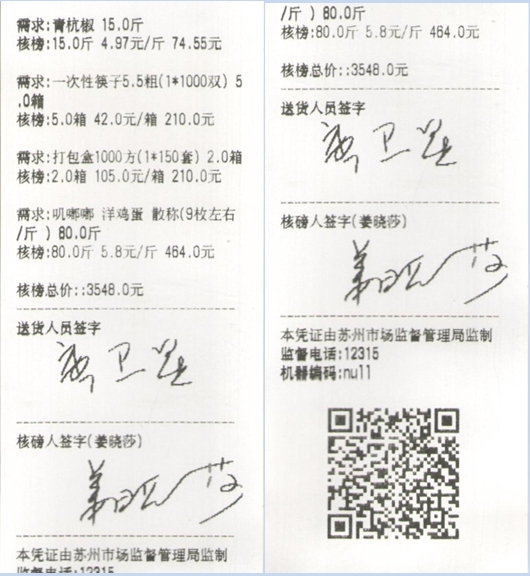 需求:青杭椒 15.0斤
核榜:15.0斤 4.97元/斤 74.55元
需求:一次性筷子5.5粗(1*1000双) 5
.0箱
核榜:5.0箱 42.0元/箱 210.0元
需求:打包盒1000方(1*150套) 2.0箱
核榜:2.0箱 105.0元/箱 210.0元
需求:叽嘟嘟 洋鸡蛋 散称(9枚左右
/斤 ) 80.0斤
核榜:80.0斤 5.8元/斤 464.0元
核榜总价::3548.0元
送货人员签字
核磅人签字(姜晓莎)
姜晓莎
本凭证由苏州市场监督管理局监制
监督电话:12315
/斤 ) 80.0斤
核榜:80.0斤 5.8元/斤 464.0元
核榜总价::3548.0元
送货人员签字
核榜人签字(姜晓莎)
姜晓莎
本凭证由苏州市场监督管理局监制
监督电话:12315
机器编码:null